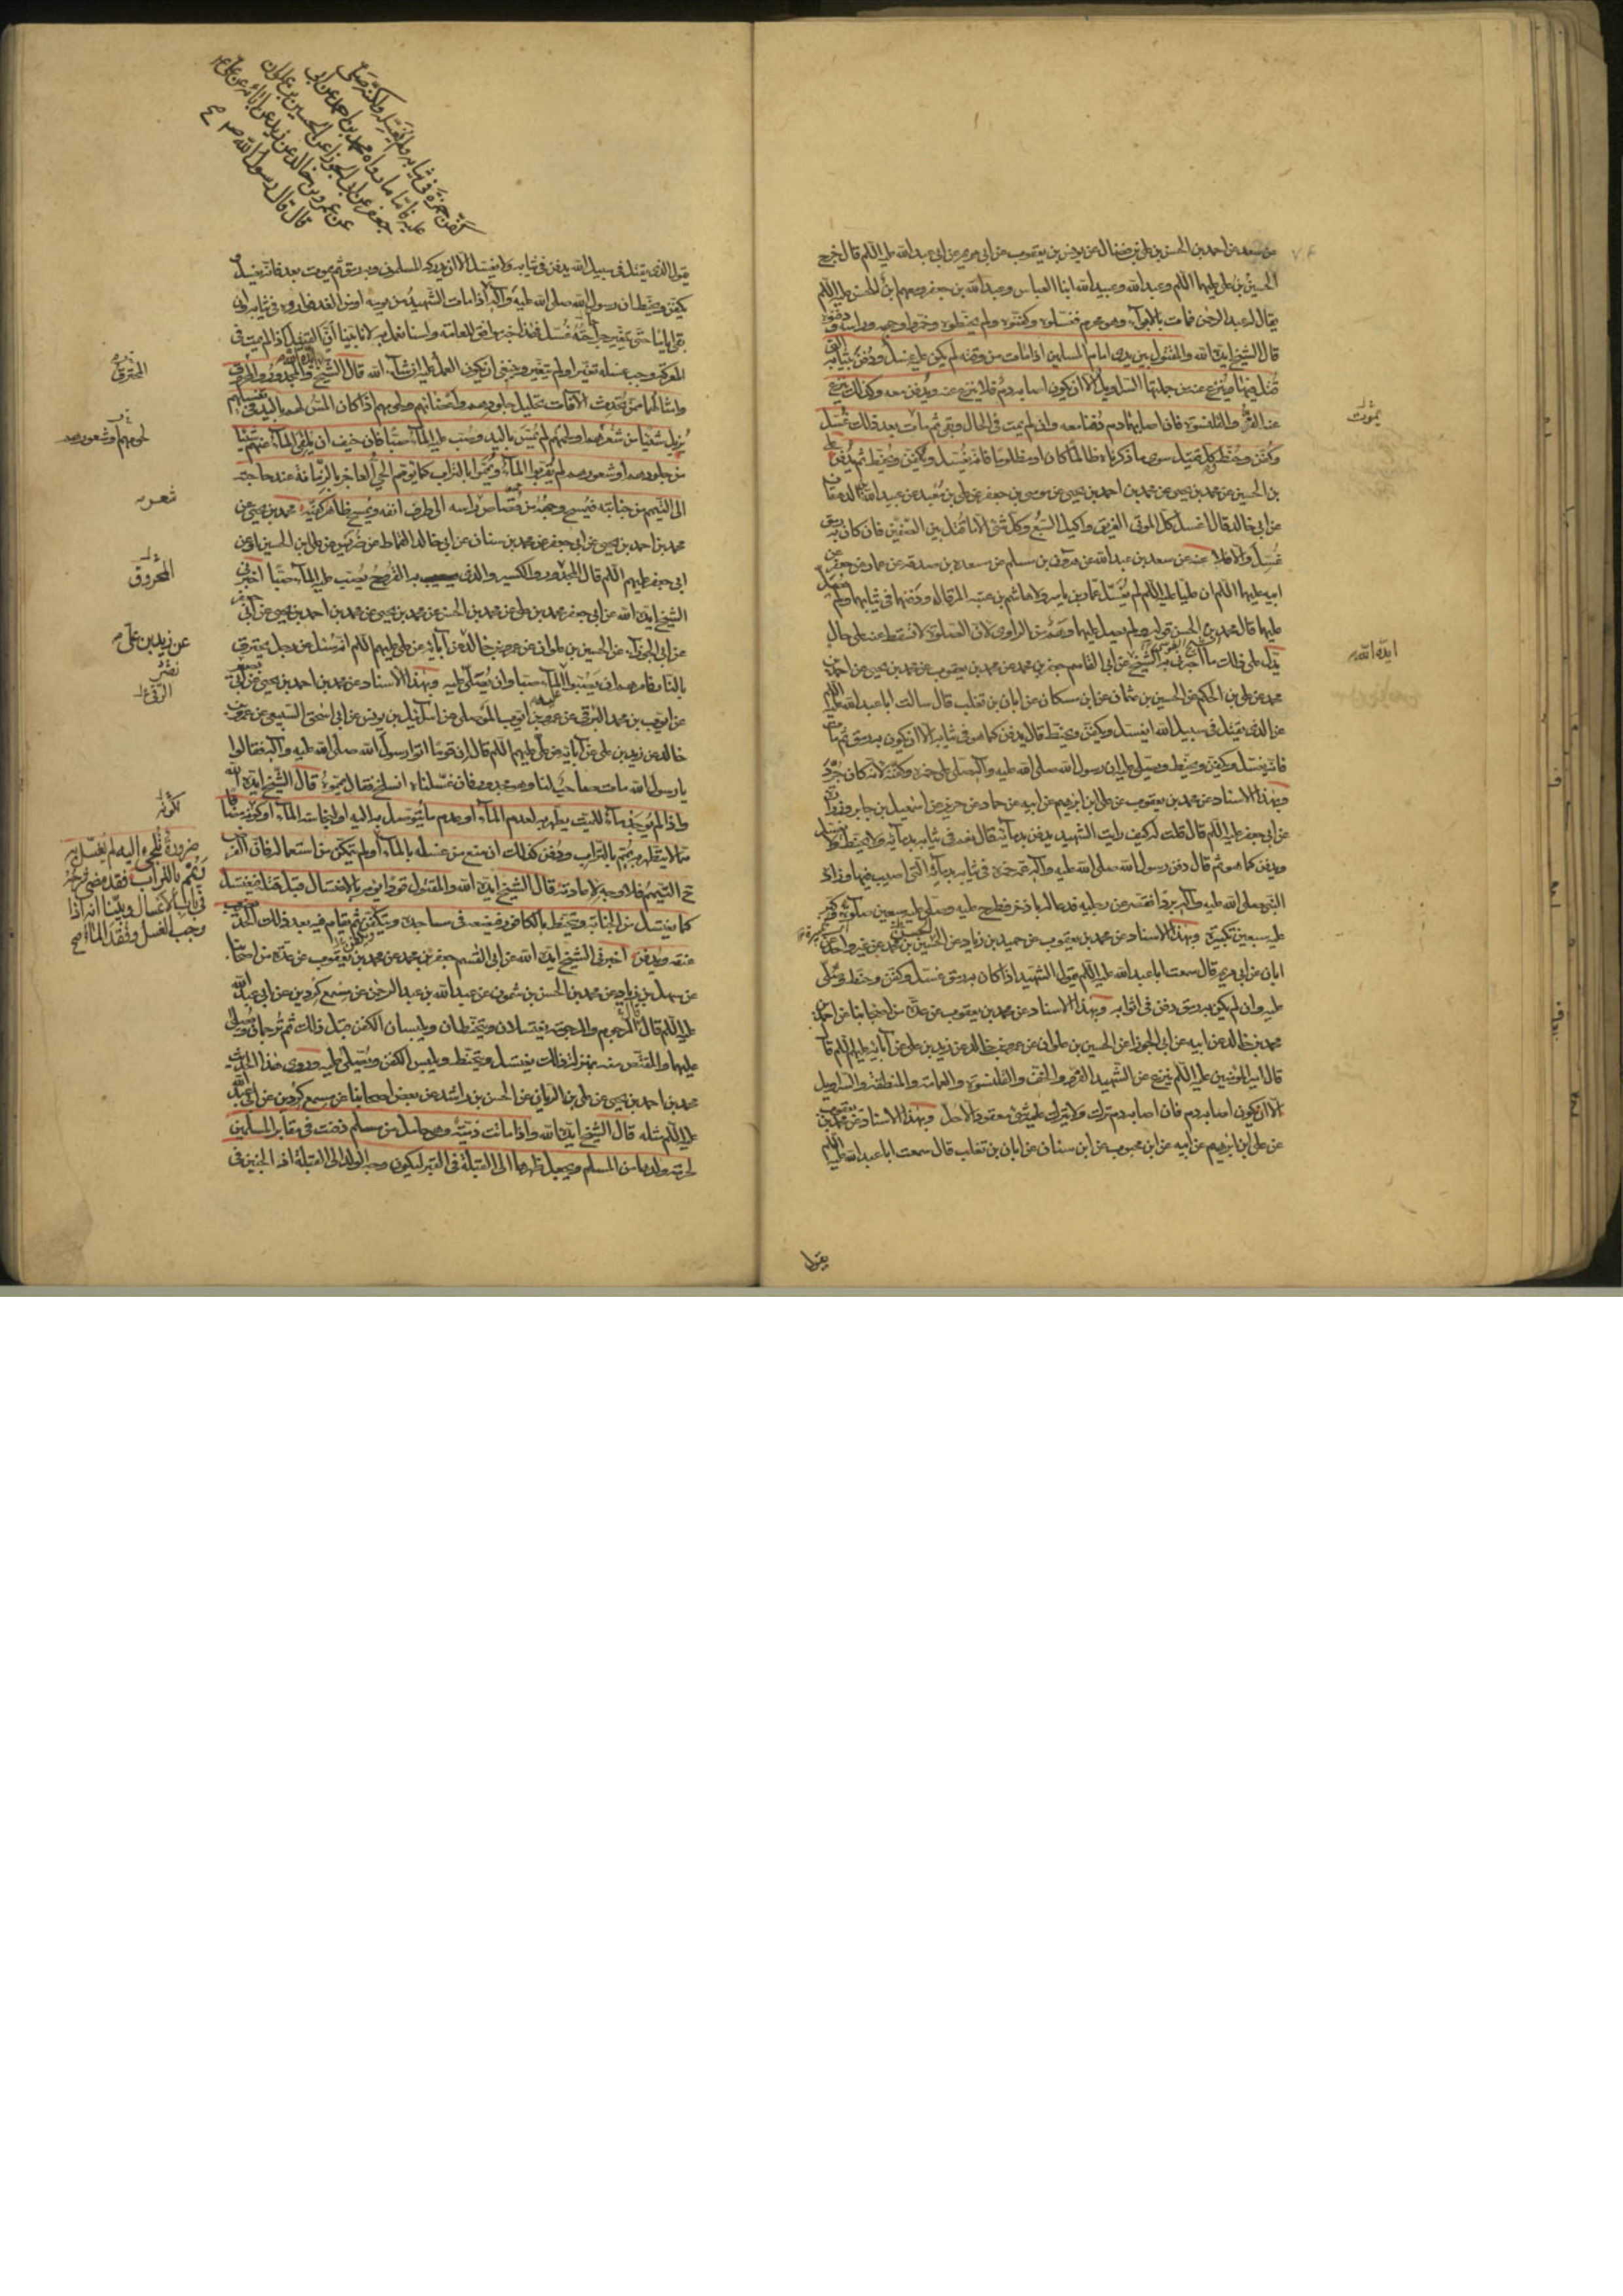 عن سعد عن احمد بن الحسن بن علي بن فضال عن يونس بن يعقوب عن ابي مريم عن ابي عبد الله عليه السلام قال خرج
الحسين بن علي عليهما السلام وعبد الله وعبيد الله ابنا العباس وعبد الله بن جعفر ومعهم ابن للحسن عليه السلام
يقال له عبد الرحمن فمات بالابواء وهو محرم فغسلوه وكفنوه ولم يحنطوه وخمروا وجهه وراسه ودفنوه
قال الشيخ ايده الله والمقتول بين يدي امام المسلمين اذا مات من وقته لم يكن عليه غسل ودفن بثيابه التي
قتل فيها وينزع عنه من جملتها السراويل الا ان يكون اصابه دم فلا ينزع عنه ويدفن معه وكذلك ينزع
عنه الفرو والقلنسوة فان اصابهما دم دفنا معه وان لم يمت في الحال وبقي ثم مات بعد ذلك غسل
وكفن وحنط وكل قتيل سوى ما ذكرناه ظالما كان او مظلوما فانه يغسل ويكفن ويحنط ثم يدفن علي
بن الحسين عن محمد بن يحيى عن محمد بن احمد بن يحيى عن موسى بن جعفر عن علي بن معبد عن عبيد الله الدهقان
عن ابي خالد قال اغسل كل الموتى الغريق واكيل السبع وكل شئ الا ما قتل بين الصفين فان كان به رمق
غسل والا فلا عنه عن سعد بن عبد الله عن هرون بن مسلم عن مسعدة بن صدقة عن عمار عن جعفر عن
ابيه عليهما السلام ان عليا عليه السلام لم يغسل عمار بن ياسر ولا هاشم بن عتبة المرقال ودفنهما في ثيابهما ولم يصل
عليهما قال محمد بن الحسن قوله ولم يصل عليهما وهم من الراوي لان الصلوة لا تسقط عنه على حال
يدل على ذلك ما اخبرني به الشيخ عن ابي القاسم جعفر بن محمد عن محمد بن يعقوب عن محمد بن يحيى عن احمد بن
محمد عن علي بن الحكم عن الحسين بن عثمان عن ابن مسكان عن ابان بن تغلب قال سالت ابا عبد الله عليه السلام
عن الذي يقتل في سبيل الله ايغسل ويكفن ويحنط قال يدفن كما هو في ثيابه الا ان يكون به رمق ثم مات
فانه يغسل ويكفن ويحنط ويصلى عليه ان رسول الله صلى الله عليه وآله صلى على حمزة وكفنه لانه كان جرد
وبهذا الاسناد عن محمد بن يعقوب عن علي بن ابرهيم عن ابيه عن حماد عن حريز عن اسمعيل بن جابر وزرارة
عن ابي جعفر عليه السلام قال قلت له كيف رايت الشهيد يدفن بدمائه قال نعم في ثيابه بدمائه ولا يحنط ولا يغسل
ويدفن كما هو ثم قال دفن رسول الله صلى الله عليه وآله عمه حمزة في ثيابه بدمائه التي اصيب فيها وزاده
النبي صلى الله عليه وآله بردا فقصر عن رجليه فدعا له باذخر فطرح عليه وصلى عليه سبعين صلوة وكبر
عليه سبعين تكبيرة وبهذا الاسناد عن محمد بن يعقوب عن حميد بن زياد عن الحسن بن محمد عن غير واحد عن
ابان عن ابي مريم قال سمعت ابا عبد الله عليه السلام يقول الشهيد اذا كان به رمق غسل وكفن وحنط وصلى
عليه وان لم يكن به رمق دفن في اثوابه وبهذا الاسناد عن محمد بن يعقوب عن عدة من اصحابنا عن احمد بن
محمد بن خالد عن ابيه عن ابي الجوزا عن الحسين بن علوان عن عمرو بن خالد عن زيد بن علي عن آبائه عليهم السلام قال
قال امير المؤمنين عليه السلام ينزع عن الشهيد الفرو والخف والقلنسوة والعمامة والمنطقة والسراويل
الا ان يكون اصابه دم فان اصابه دم ترك ولا يترك عليه شئ معقود الا حل وبهذا الاسناد عن محمد بن يعقوب
عن علي بن ابرهيم عن ابيه عن ابن محبوب عن ابن سنان عن ابان بن تغلب قال سمعت ابا عبد الله عليه السلام
يقول
يموت
ايده الله
كفن حمزة في ثيابه ولم يغسله ولكنه صلى
عليه فاما ما رواه محمد بن احمد عن ابي
جعفر عن ابي الجوزا عن الحسين بن علوان
عن عمرو بن خالد عن زيد عن آبائه عن علي ع
قال قال رسول الله ص
يقول الذي يقتل في سبيل الله يدفن في ثيابه ولا يغسل الا ان يدركه المسلمون وبه رمق ثم يموت بعد فانه يغسل
ويكفن ويحنط ان رسول الله صلى الله عليه وآله اذا مات الشهيد من يومه او من الغد فواروه في ثيابه وان
بقي اياما حتى تتغير جراحته غسل فهذا خبر موافق للعامة ولسنا نعمل به لانا بينا ان القتيل اذا لم يمت في
المعركة وجب غسله تغير او لم يتغير وينبغي ان يكون العمل عليه ان شاء الله قال الشيخ ايده الله والمجدور والمحترق
واشباههما ممن تحدث الآفات تحليل جلودهم واعضائهم ولحومهم اذا كان المس لهم باليد في تغسيلهم
يزيل شيئا من شعرهم او لحمهم لم يمس باليد وصب عليه الماء صبا فان خيف ان يلقي الماء عنهم شيئا
من جلودهم او شعورهم لم يقربوا الماء ويمموا بالتراب كما يؤمم الحي العاجز بالزمانة عند حاجته
الى التيمم من جنابته فيمسح وجهه من قصاص شعر راسه الى طرف انفه ويمسح ظاهر كفيه محمد بن يحيى عن
محمد بن احمد بن يحيى عن ابي جعفر عن محمد بن سنان عن ابي خالد القماط عن ضريس عن علي بن الحسين او عن
ابي جعفر عليهم السلام قال المجدور والكسير والذي به القروح يصب عليه الماء صبا اخبرني
الشيخ ايده الله عن ابي جعفر محمد بن علي عن محمد بن الحسن عن محمد بن يحيى عن محمد بن احمد بن يحيى عن ابي جعفر
عن ابي الجوزاء عن الحسين بن علوان عن عمرو بن خالد عن آبائه عن علي عليهم السلام انه سئل عن رجل يحترق
بالنار فامرهم ان يصبوا عليه الماء صبا وان يصلى عليه وبهذا الاسناد عن محمد بن احمد بن يحيى عن ابي بصير
عن ايوب بن محمد البرقي عن عمرو بن ايوب الموصلي عن اسرائيل بن يونس عن ابي اسحق السبيعي عن عمرو بن
خالد عن زيد بن علي عن آبائه عن علي عليهم السلام قال ان قوما اتوا رسول الله صلى الله عليه وآله فقالوا
يا رسول الله مات صاحب لنا وهو مجدور فان غسلناه انسلخ فقال يمموه قال الشيخ ايده الله
واذا لم يوجد ماء للميت يطهر به لعدم الماء او عدم ما يتوصل به اليه او لنجاسة الماء او كونه مضافا
مما لا يتطهر به يمم بالتراب ودفن كذلك ان منع من غسله بالماء او لم يتمكن من استعماله فان الفرض ح
التيمم فلا وجه لاعادته قال الشيخ ايده الله والمقتول قودا يؤمر بالاغتسال قبل قتله فيغتسل
كما يغتسل من الجنابة ويتحنط بالكافور فيضعه في مساجده ويتكفن ثم يقام فيه بعد ذلك الحد بضرب
عنقه ويدفن اخبرني الشيخ ايده الله عن ابي القسم جعفر بن محمد عن محمد بن يعقوب عن عدة من اصحابنا
عن سهل بن زياد عن محمد بن الحسن بن شمون عن عبد الله بن عبد الرحمن عن مسمع كردين عن ابي عبد الله
عليه السلام قال المرجوم والمرجومة يغتسلان ويتحنطان ويلبسان الكفن قبل ذلك ثم يرجمان ويصلى
عليهما والمقتص منه بمنزلة ذلك يغتسل ويتحنط ويلبس الكفن ويصلى عليه وروى هذا الحديث
محمد بن احمد بن يحيى عن علي بن الريان عن الحسن بن راشد عن بعض اصحابنا عن مسمع كردين عن ابي عبد الله
عليه السلام مثله قال الشيخ ايده الله واذا ماتت ذمية وهي حامل من مسلم دفنت في مقابر المسلمين
لحرمة ولدها من المسلم ويجعل ظهرها الى القبلة في القبر ليكون وجه الولد الى القبلة اذ الجنين في
المحترق
لحومهم او شعورهم
شعره
المحروق
عن زيد بن علي
نصر
الرقي
لكونه
ضرورة تلجئ اليه لم يغسل به
ويمم بالتراب فقد مضى شرحه
في باب الاغسال وبينا انه اذا
وجب الغسل وفقد الماء صح